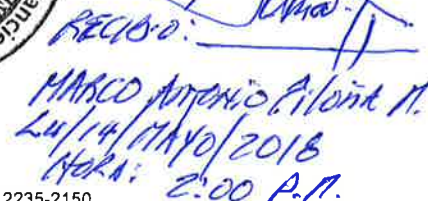 RECIBIO:
MARCO Antonio Piloña M.
LU/14/MAYO/2018
HORA: 2:00 P.M.
2235-2150